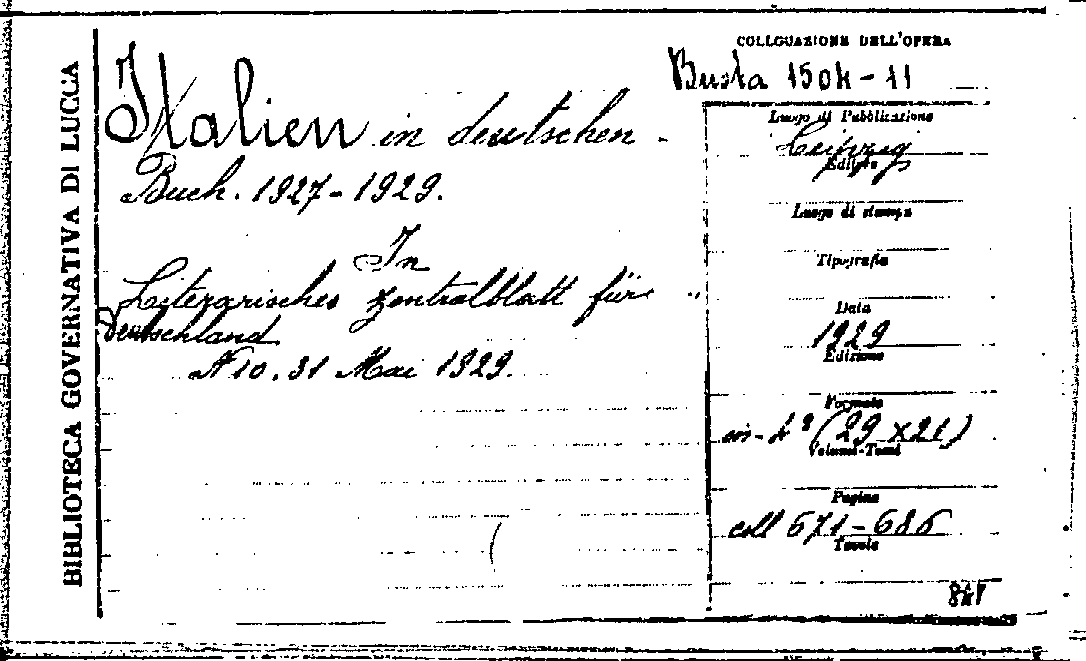 BIBLIOTECA GOVERNATIVA DI LUCCA
COLLOCAZIONE DELL'OPERA
Busta 1504-11
Italien in deutschen
Buch. 1927-1929.
In
Literarisches Zentralblatt für
Deutschland
N 10. 31 Mai 1929.
Luogo di Pubblicazione
Leipzig
Editore
Luogo di stampa
Tipografia
Data
1929
Edizione
Formato
in-4º (29 x 21)
Volumi-Tomi
Pagine
coll 671-686
Tavole